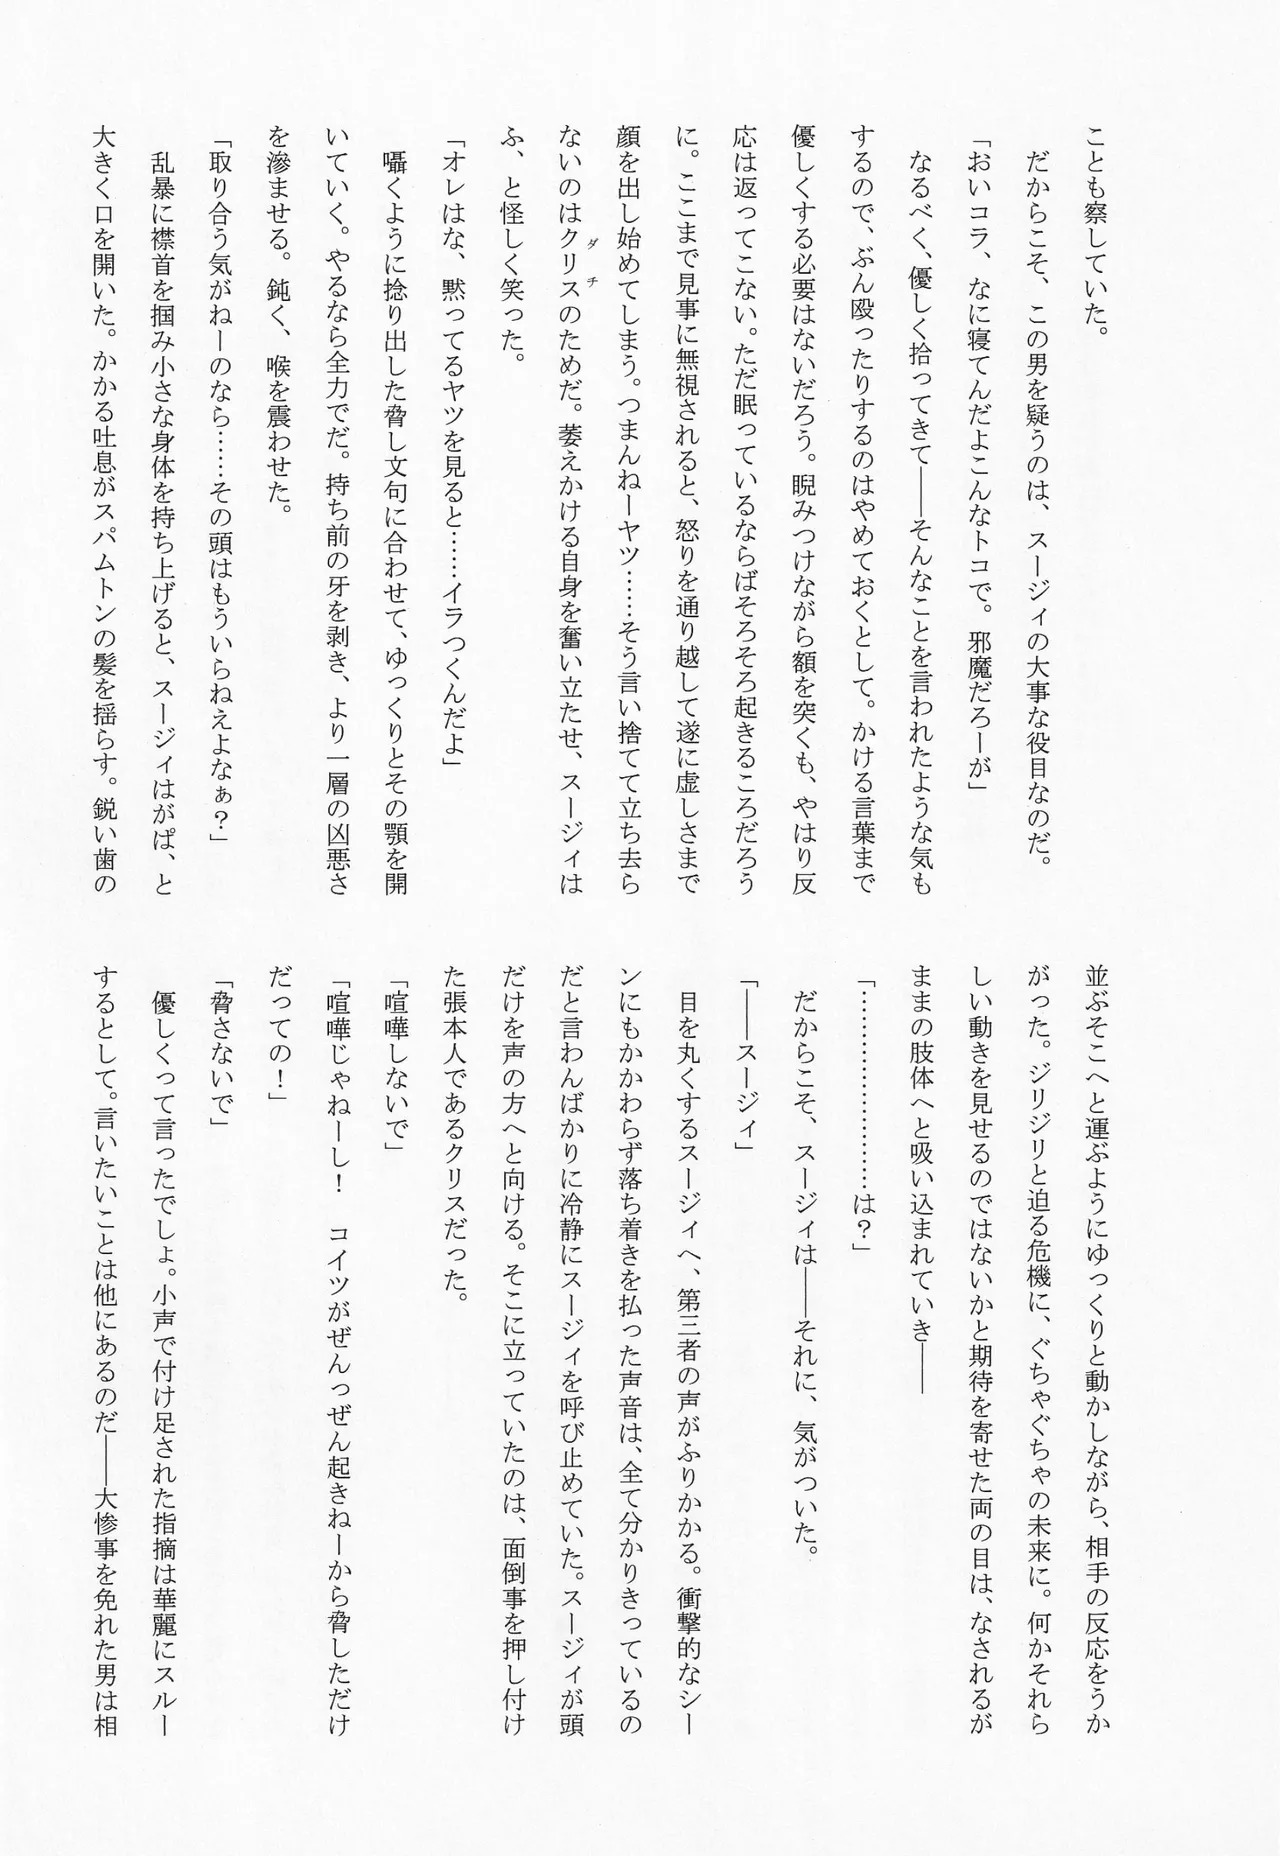 ことも察していた。
　だからこそ、この男を疑うのは、スージィの大事な役目なのだ。
「おいコラ、なに寝てんだよこんなトコで。邪魔だろーが」
　なるべく、優しく拾ってきて――そんなことを言われたような気も
するので、ぶん殴ったりするのはやめておくとして。かける言葉まで
優しくする必要はないだろう。睨みつけながら額を突くも、やはり反
応は返ってこない。ただ眠っているならばそろそろ起きるころだろう
に。ここまで見事に無視されると、怒りを通り越して遂に虚しさまで
顔を出し始めてしまう。つまんねーヤツ……そう言い捨てて立ち去ら
ダチ
ないのはクリスのためだ。萎えかける自身を奮い立たせ、スージィは
ふ、と怪しく笑った。
「オレはな、黙ってるヤツを見ると……イラつくんだよ」
　囁くように捻り出した脅し文句に合わせて、ゆっくりとその顎を開
いていく。やるなら全力でだ。持ち前の牙を剥き、より一層の凶悪さ
を滲ませる。鈍く、喉を震わせた。
「取り合う気がねーのなら……その頭はもういらねえよなぁ？」
　乱暴に襟首を掴み小さな身体を持ち上げると、スージィはがぱ、と
大きく口を開いた。かかる吐息がスパムトンの髪を揺らす。鋭い歯の
並ぶそこへと運ぶようにゆっくりと動かしながら、相手の反応をうか
がった。ジリジリと迫る危機に、ぐちゃぐちゃの未来に。何かそれら
しい動きを見せるのではないかと期待を寄せた両の目は、なされるが
ままの肢体へと吸い込まれていき――
「…………………は？」
　だからこそ、スージィは――それに、気がついた。
「――スージィ」
　目を丸くするスージィへ、第三者の声がふりかかる。衝撃的なシー
ンにもかかわらず落ち着きを払った声音は、全て分かりきっているの
だと言わんばかりに冷静にスージィを呼び止めていた。スージィが頭
だけを声の方へと向ける。そこに立っていたのは、面倒事を押し付け
た張本人であるクリスだった。
「喧嘩しないで」
「喧嘩じゃねーし！　コイツがぜんっぜん起きねーから脅しただけ
だっての！」
「脅さないで」
　優しくって言ったでしょ。小声で付け足された指摘は華麗にスルー
するとして。言いたいことは他にあるのだ――大惨事を免れた男は相